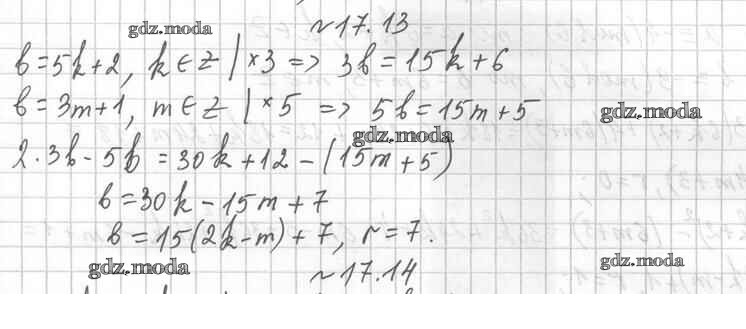 gdz.moda
№ 17.13
b = 5k + 2, k ∈ z | × 3 => 3b = 15k + 6
b = 3m + 1, m ∈ z | × 5 => 5b = 15m + 5
gdz.moda
gdz.moda
2 · 3b - 5b = 30k + 12 - (15m + 5)
b = 30k - 15m + 7
b = 15(2k - m) + 7, r = 7.
gdz.moda
gdz.moda
№ 17.14